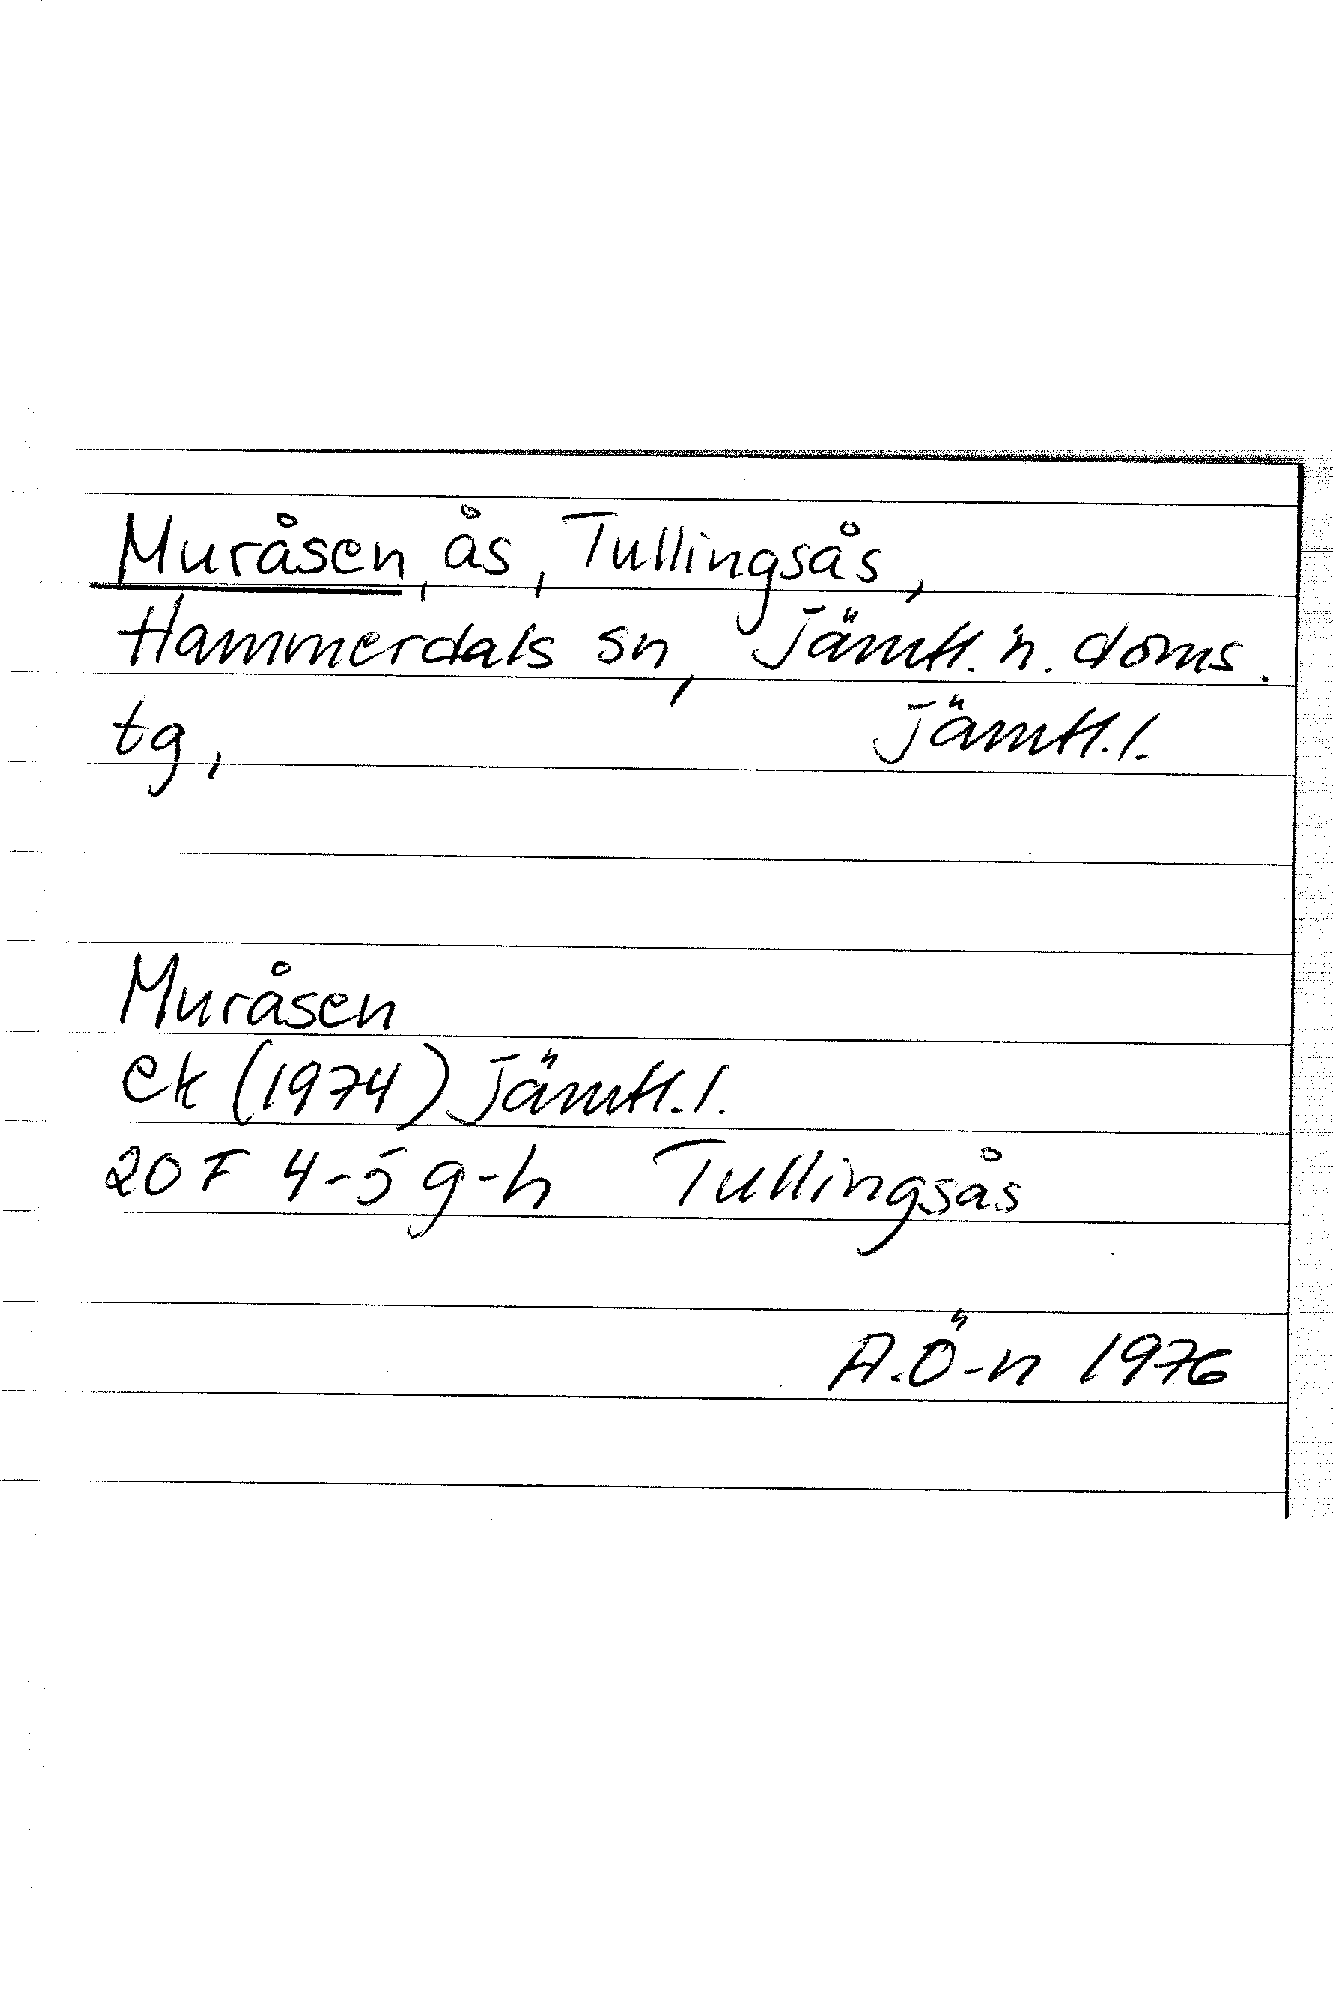 Muråsen, ås, Tullingsås,
Hammerdals sn, Jämtl. n. doms.
tg, Jämtl. l.
Muråsen
ek (1974) Jämtl. l.
20 F 4-5 g-h Tullingsås
A.Ö-n 1976